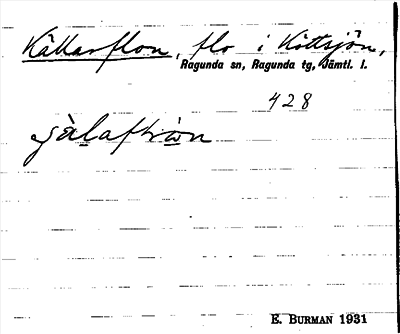 Källarflon, flo i Köttsjön,
Ragunda sn, Ragunda tg, Jämtl. l.
428
E. BURMAN 1931